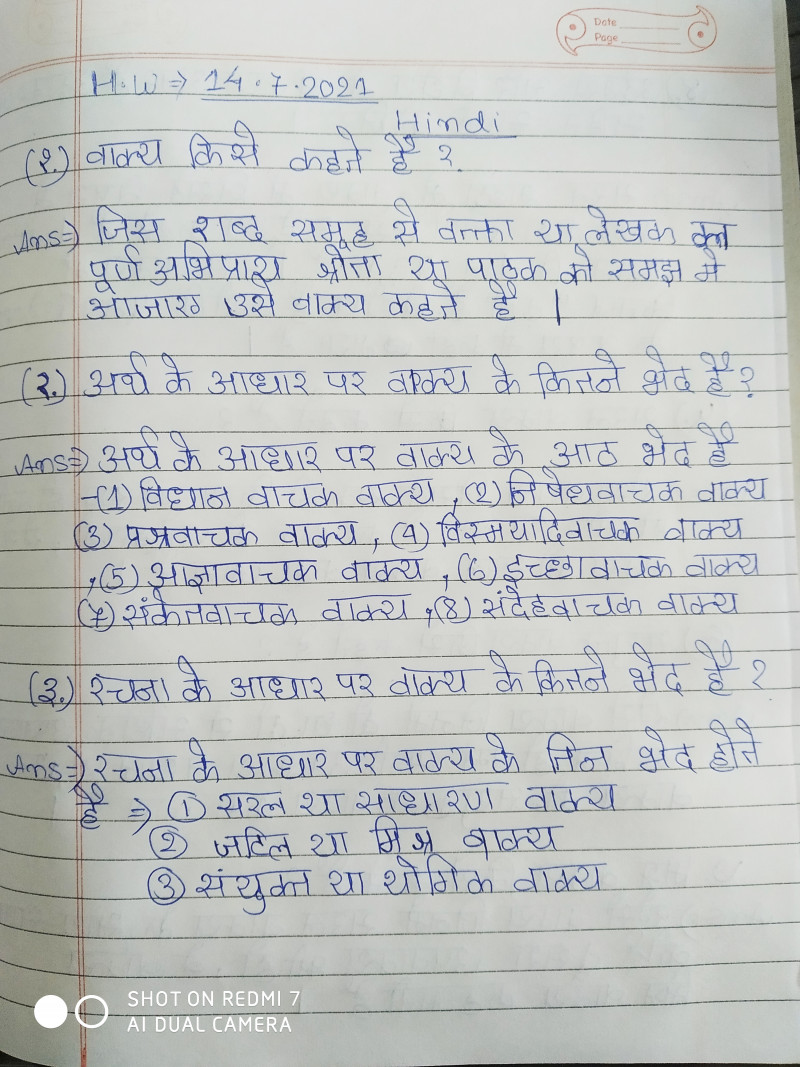 Date
Page
H.W ⇒ 14.7.2021
Hindi
(१.) वाक्य किसे कहते हैं ?
Ans ⇒) जिस शब्द समूह से वक्ता या लेखक का
पूर्ण अभिप्राय श्रोता या पाठक को समझ मे
आजाए उसे वाक्य कहते हैं |
(२.) अर्थ के आधार पर वाक्य के कितने भेद हैं ?
Ans ⇒) अर्थ के आधार पर वाक्य के आठ भेद हैं
-(1) विधान वाचक वाक्य , (2) निषेधवाचक वाक्य
(3) प्रश्नवाचक वाक्य , (4) विस्मयादिवाचक वाक्य
,(5) आज्ञावाचक वाक्य , (6) ईच्छा वाचक वाक्य
(7) संकेतवाचक वाक्य ,(8) संदेहवाचक वाक्य
(३.) रचना के आधार पर वाक्य के कितने भेद हैं ?
Ans ⇒) रचना के आधार पर वाक्य के तिन भेद होते
हैं ⇒ ① सरल या साधारण वाक्य
② जटिल या मिश्र वाक्य
③ संयुक्त या यौगिक वाक्य
SHOT ON REDMI 7
AI DUAL CAMERA